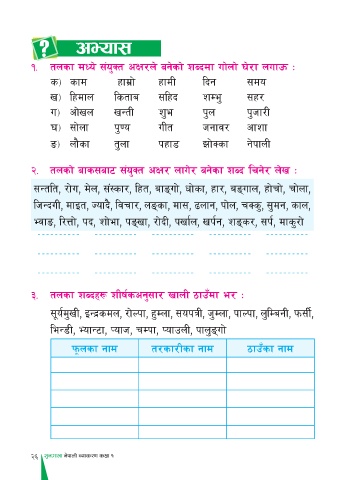 ? अभ्यास
१. तलका मध्ये संयुक्त अक्षरले बनेको शब्दमा गोलो घेरा लगाऊ :
क) काम हाम्रो हामी दिन समय
ख) हिमाल किताब सहिद शम्भु सहर
ग) ओखल खन्ती शुभ पुल पुजारी
घ) सोला पुण्य गीत जनावर आशा
ङ) लौका तुला पहाड झोक्का नेपाली
२. तलको बाकसबाट संयुक्त अक्षर लागेर बनेका शब्द चिनेर लेख :
सन्तति, रोग, मेल, संस्कार, हित, बाङ्गो, धोका, हार, बङ्गाल, होचो, चोला,
जिन्दगी, माइत, ज्यादै, विचार, लङ्का, मास, ढलान, पोल, चक्कु, सुमन, काल,
भ्याङ, रित्तो, पद, शोभा, पङ्खा, रोदी, पर्खाल, खर्पन, शङ्कर, सर्प, माकुरो
३. तलका शब्दहरू शीर्षकअनुसार खाली ठाउँमा भर :
सूर्यमुखी, इन्द्रकमल, रोल्पा, हुम्ला, सयपत्री, जुम्ला, पाल्पा, लुम्बिनी, फर्सी,
भिन्डी, भ्यान्टा, प्याज, चम्पा, प्याउली, पालुङ्गो
फूलका नाम तरकारीका नाम ठाउँका नाम
२६ नेपाली व्याकरण कक्षा १